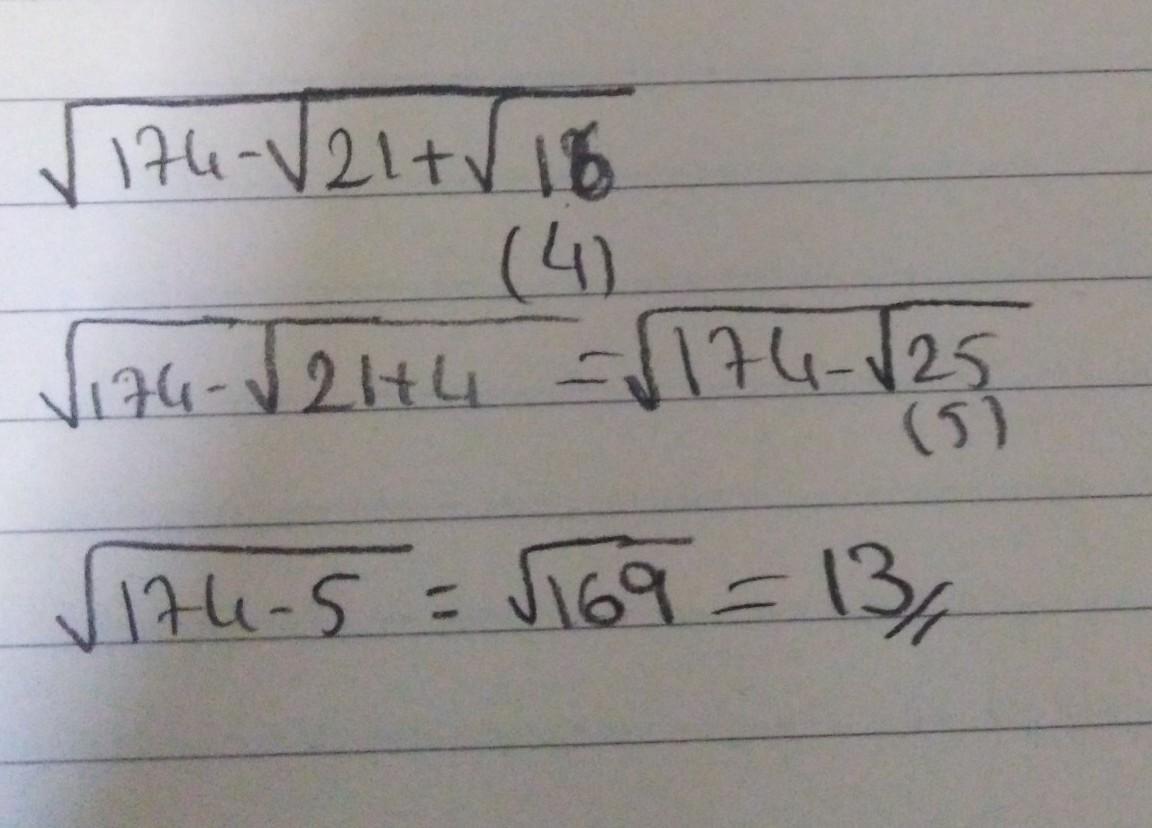 √174-√21+√16
(4)
√174-√21+4 = √174-√25
(5)
√174-5 = √169 = 13//